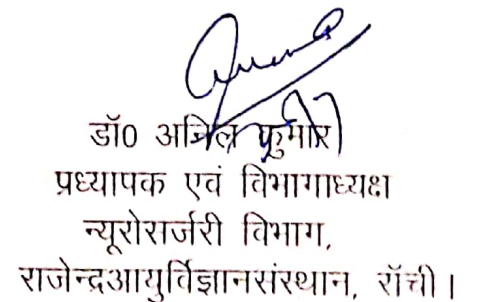 डॉ0 अनिल कुमार
प्रध्यापक एवं विभागाध्यक्ष
न्यूरोसर्जरी विभाग,
राजेन्द्रआयुर्विज्ञानसंस्थान, राॅंची।